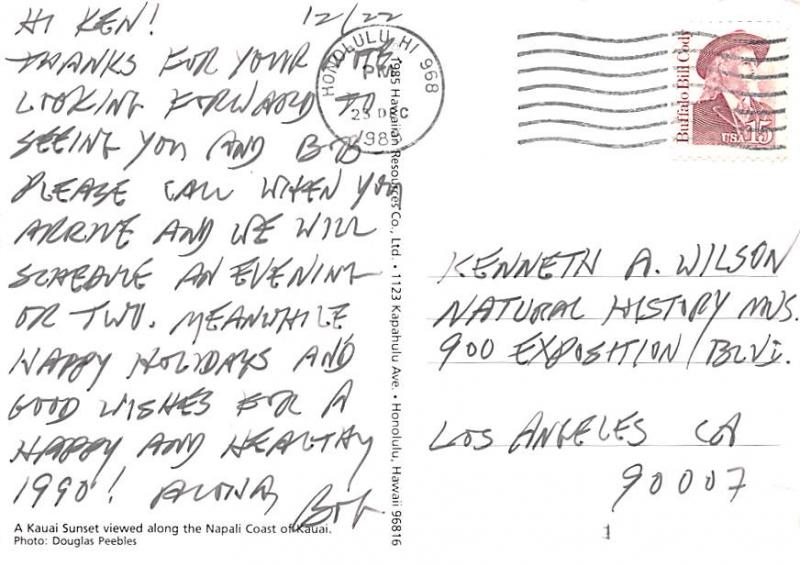 HI KEN! 12/22
THANKS FOR YOUR
LOOKING FORWARD TO
SEEING YOU AND BOB
PLEASE CALL WHEN YOU
ARRIVE AND WE WILL
SCHEDULE AN EVENING
OR TWO. MEANWHILE
HAPPY HOLIDAYS AND
GOOD WISHES FOR A
HAPPY AND HEALTHY
1990! ALOHA,
Bob
A Kauai Sunset viewed along the Napali Coast of Kauai.
Photo: Douglas Peebles
1985 Hawaiian Resources Co., Ltd. • 1123 Kapahulu Ave. • Honolulu, Hawaii 96816
HONOLULU, HI 968
PM
23 DEC
Buffalo Bill Cody
USA 15
KENNETH A. WILSON
NATURAL HISTORY MUS.
900 EXPOSITION BLVD.
LOS ANGELES CA
90007
1